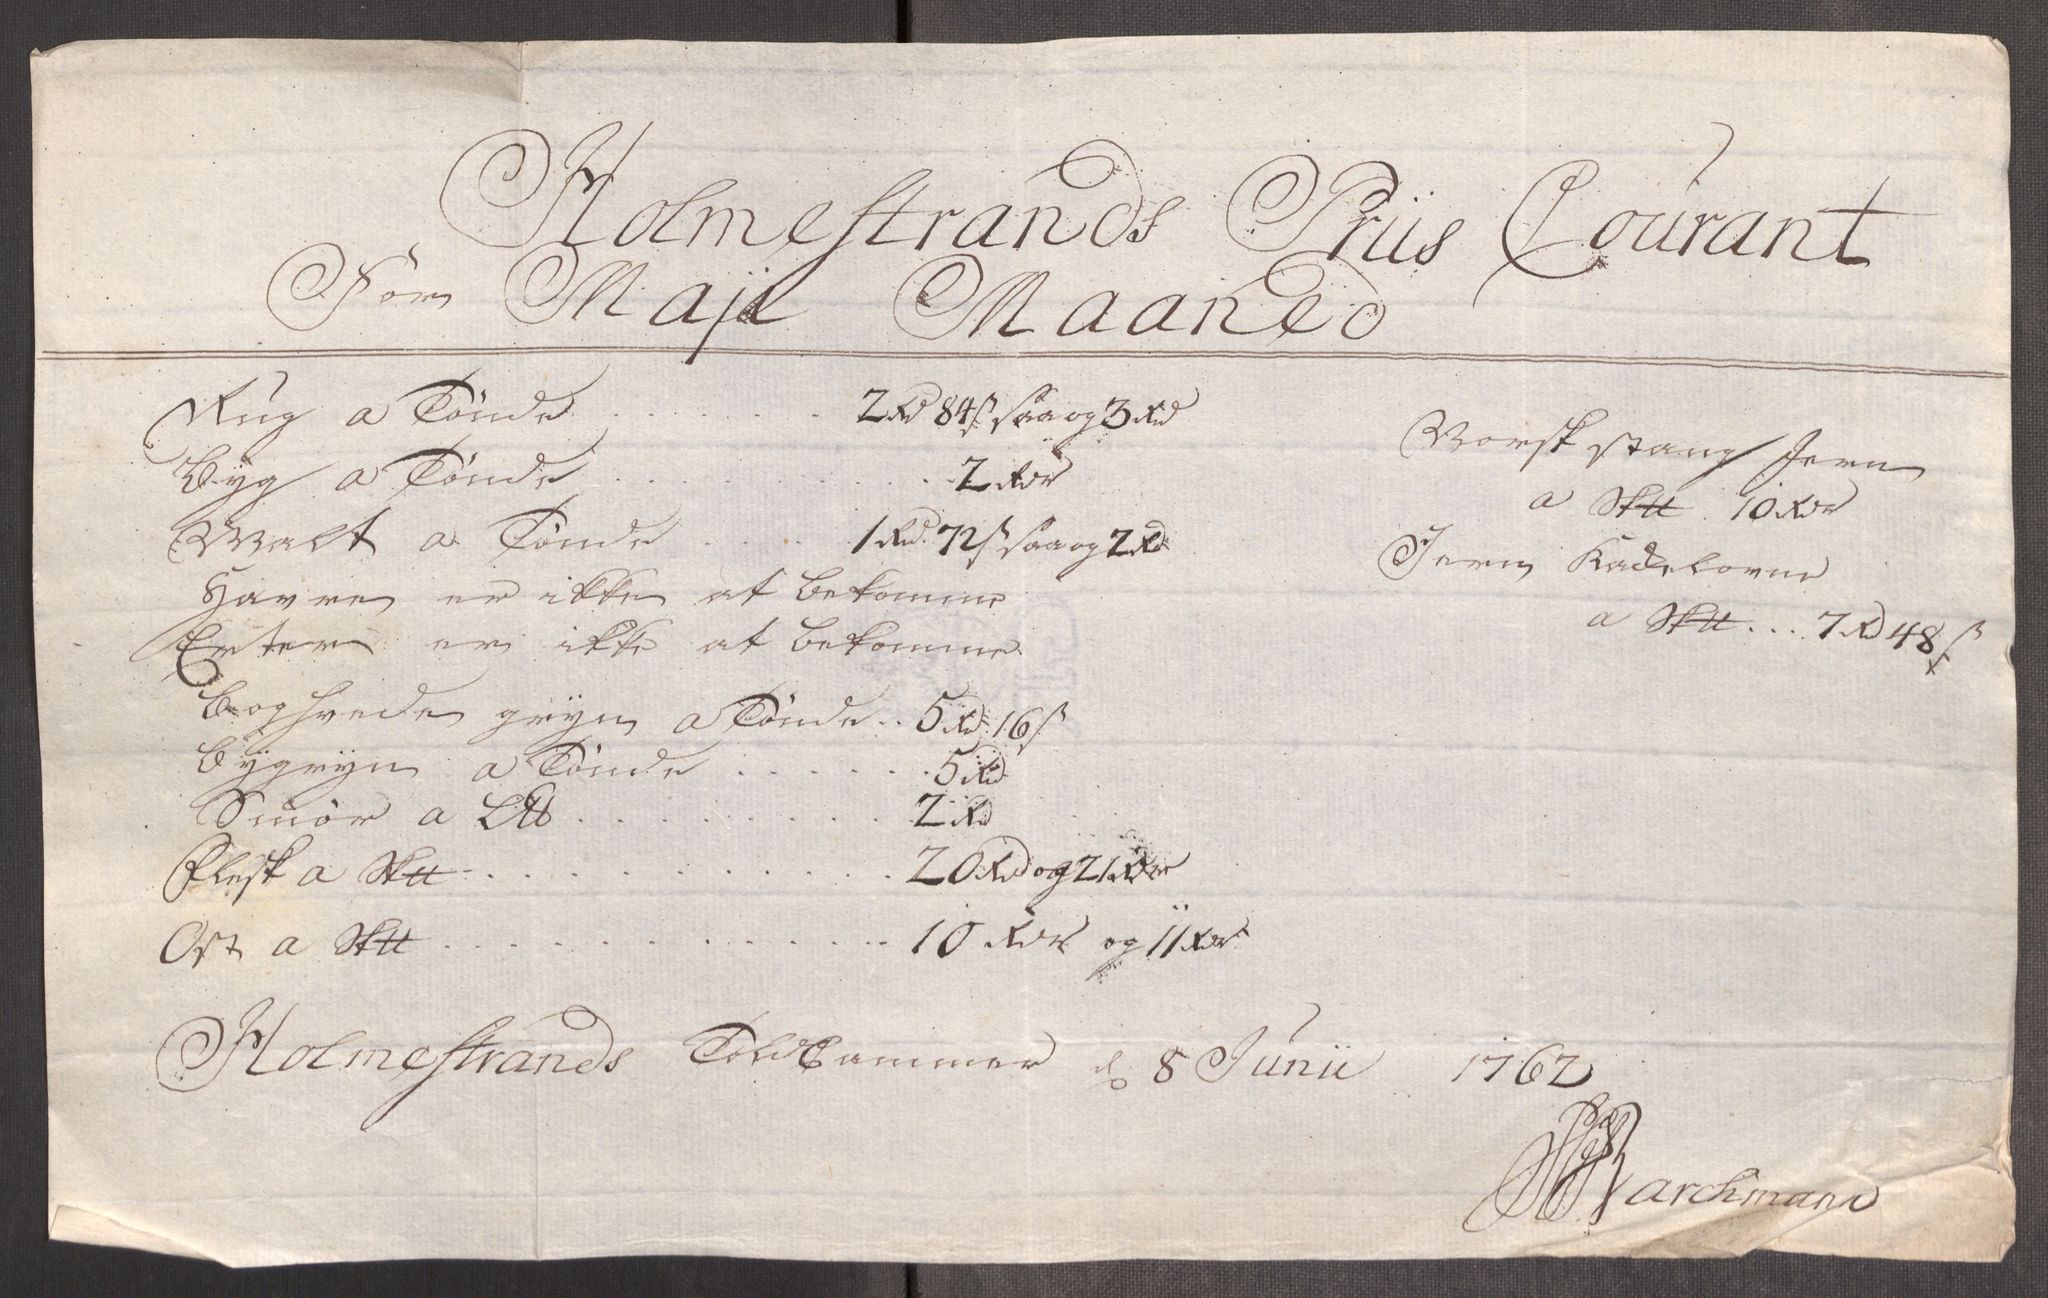 Holmestrands Priis Courant
For Maji Maaned
Rug a Tønde . . . . . . . 2 Rd 84 ß saa og 3 Rd
Byg a Tønde . . . . . . . . . . 2 Rdr
Malt a Tønde . . . . . 1 Rd. 72 ß saa og 2 Rd
Havre er ikke at bekomme
Erter er ikke at bekomme
Boghvede gryn a Tønde .. 5 Rd 16 ß
Bygryn a Tønde . . . . . . . 5 Rd
Smör a L℔ . . . . . . . . . . 2 Rd
Flesk a Sk℔ . . . . . . . . . . . . 20 Rd og 21 Rdr
Ost a Sk℔ . . . . . . . . . . . . 10 Rdr og 11 Rdr
Norsk stang Jern
a Sk℔ 10 Rdr
Jern Kackelovne
a Sk℔ ... 7 Rd 48 ß
Holmestrands Told Cammer d 8 Junii 1762
Barchmand